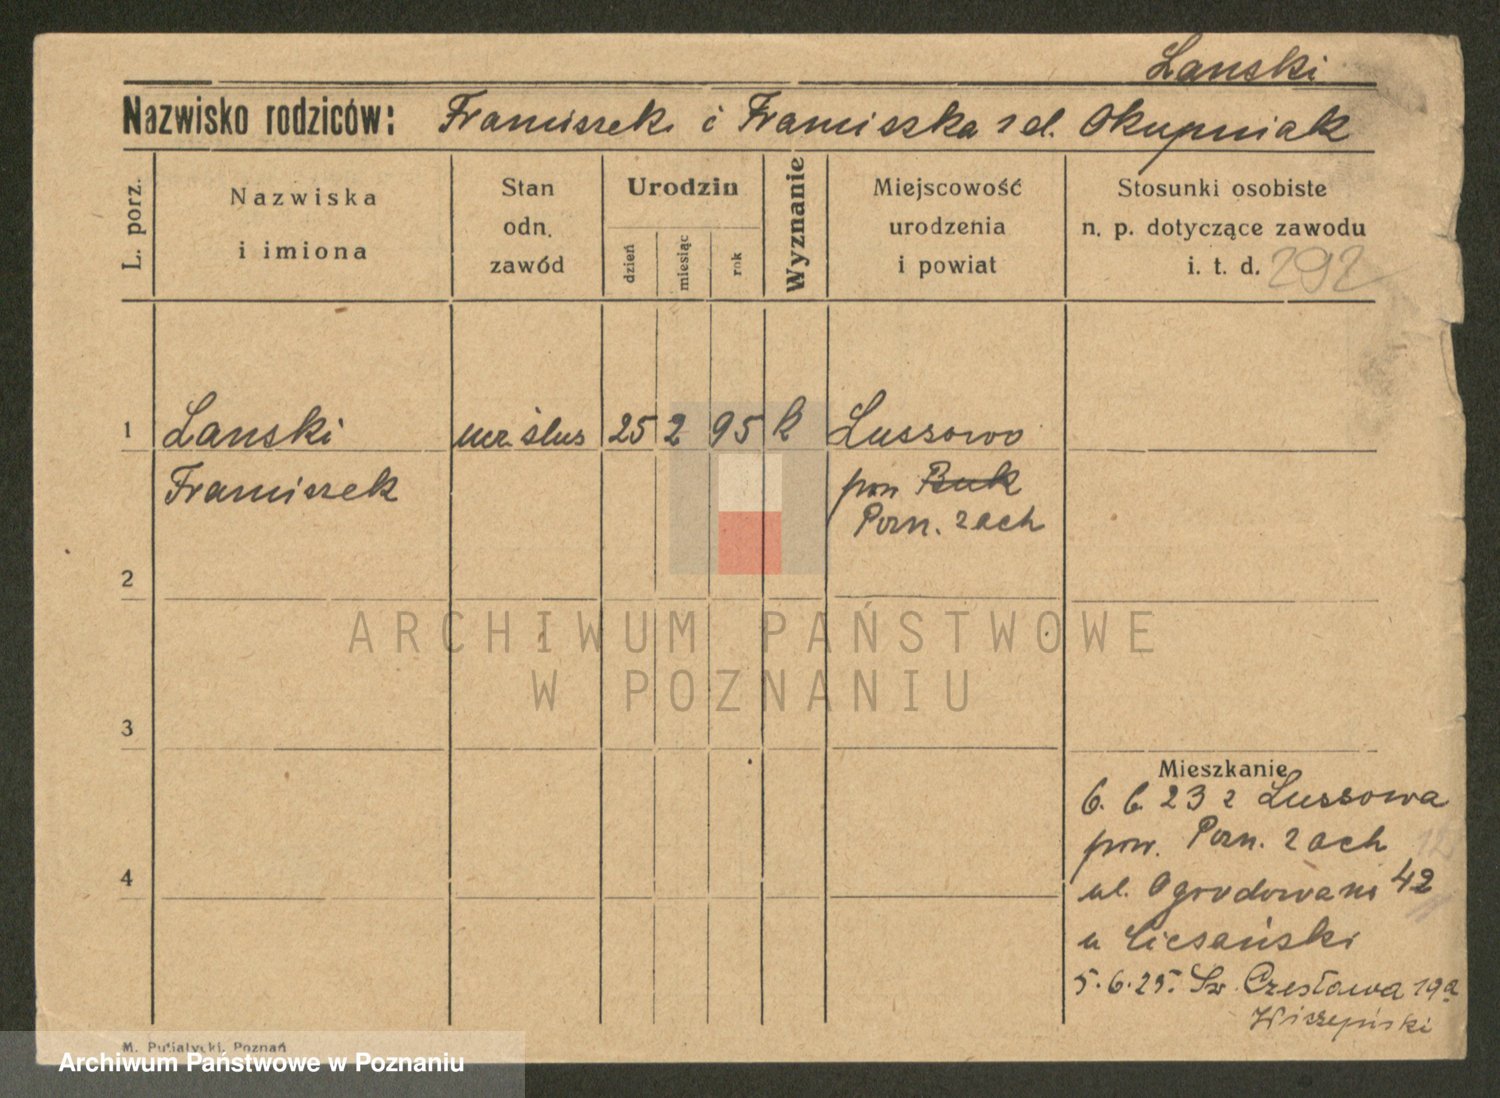 Lanski
Nazwisko rodziców: Franciszek i Franciszka z d. Okupniak
L. porz.
Nazwiska
i imiona
Stan
odn.
zawód
Urodzin
dzień
miesiąc
rok
Wyznanie
Miejscowość
urodzenia
i powiat
Stosunki osobiste
n. p. dotyczące zawodu
i. t. d. 292
1 Lanski ucz. ślus 25 2 95 k Lussowo
Franciszek pow Buk
Pozn. zach
2
ARCHIWUM PAŃSTWOWE
W POZNANIU
3
Mieszkanie
6. 6. 23 z Lussowa
pow. Pozn. zach
4
ul. Ogrodowa 42
u Ciesański
5.6.25. Św. Czesława 19a
Wiszepiński
M. Pusiatycki, Poznań
Archiwum Państwowe w Poznaniu